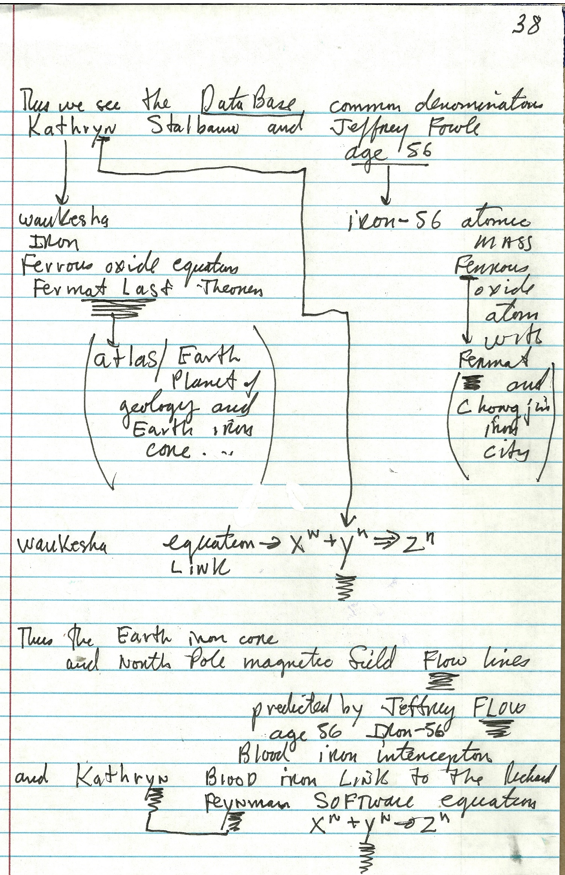 38
Thus we see the Data Base common denominators
Kathryn Stalbaum and Jeffrey Fowle
age 56
Waukesha
Iron
Ferrous oxide equation
Fermat Last Theorem
(atlas/Earth
Planet of
geology and
Earth iron
cone...)
iron-56 atomic
mass
Ferrous
oxide
atom
with
Fermat
and
Chongjin
iron
city
Waukesha equation → X^n + y^n ⇒ Z^n
Link
Thus the Earth iron cone
and North Pole magnetic field Flow lines
predicted by Jeffrey FLOW
age 56 Iron-56
Blood iron interceptor
and Kathryn Blood iron Link to the Richard
Feynman SOFTware equation
X^n + y^n → Z^n